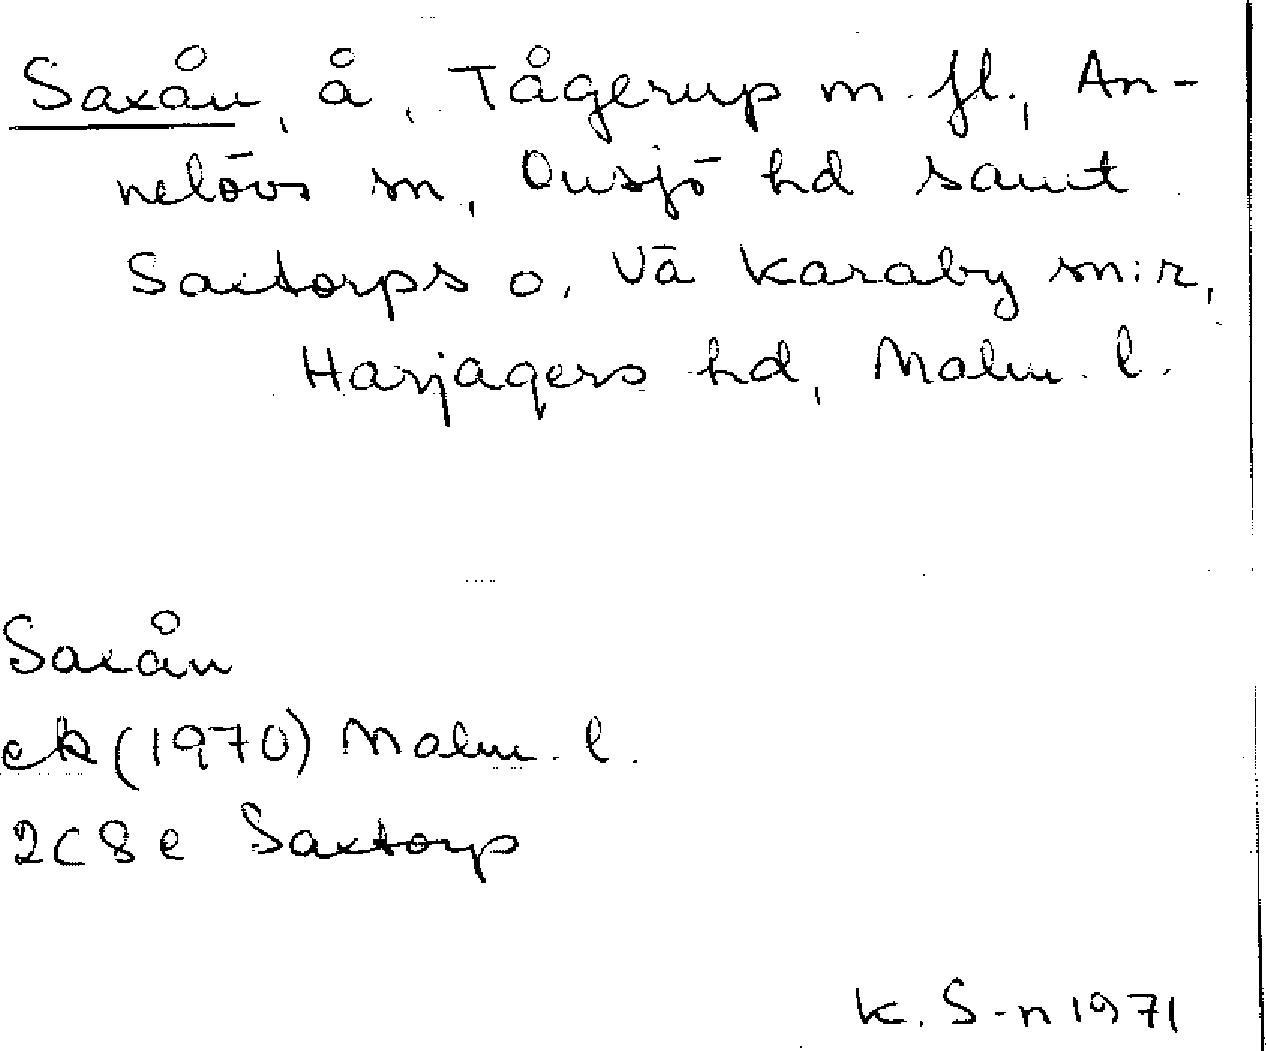 Saxån, å, Tågerup m. fl., An-
nelövs sn, Onsjö hd samt
Saxtorps o. Vä Karaby sn:r,
Harjagers hd, Malm. l.
Saxån
ek (1970) Malm. l.
2C 8e Saxtorp
K. S-n 1971